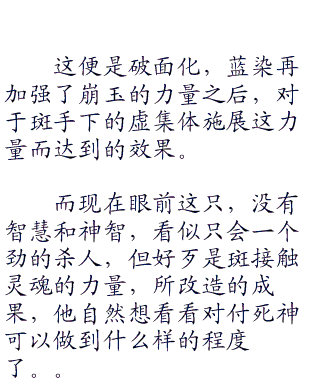 这便是破面化，蓝染再
加强了崩玉的力量之后，对
于斑手下的虚集体施展这力
量而达到的效果。
而现在眼前这只，没有
智慧和神智，看似只会一个
劲的杀人，但好歹是斑接触
灵魂的力量，所改造的成
果，他自然想看看对付死神
可以做到什么样的程度
了。。